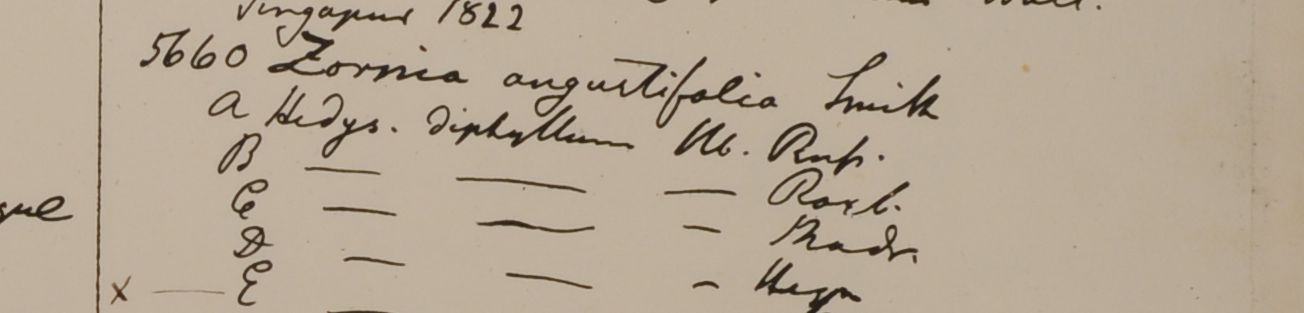 Singapur 1822 Wall.
5660 Zornia angustifolia Smith
A Hedys. diphyllum Hb. Russ.
B — — — Roxb.
C — — - Madr.
D — — - Heyn
x — E